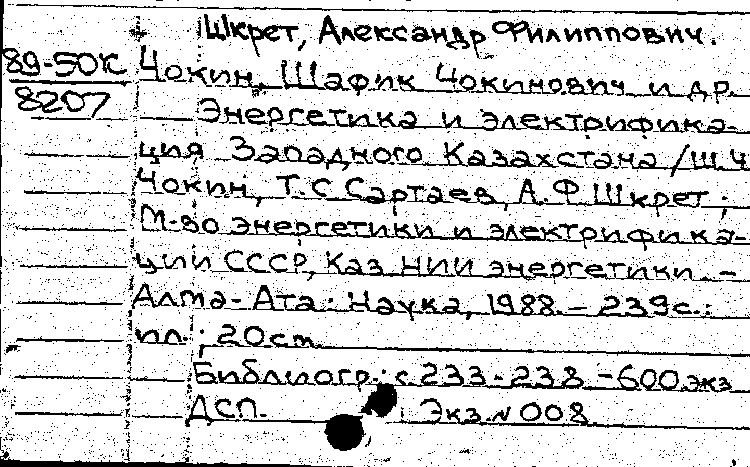 Шкрет, Александр Филиппович.
89-50К Чокин, Шафик Чокинович и др.
8207 Энергетика и электрифика-
ция Западного Казахстана /Ш.Ч
Чокин, Т.С Сартаев, А.Ф.Шкрет;
М-во энергетики и электрифика-
ции СССР, Каз НИИ энергетики. -
Алма-Ата: Наука, 1988. - 239с.:
ил.; 20см.
Библиогр.: с 233-238 - 600 экз
ДСП. Экз N 008